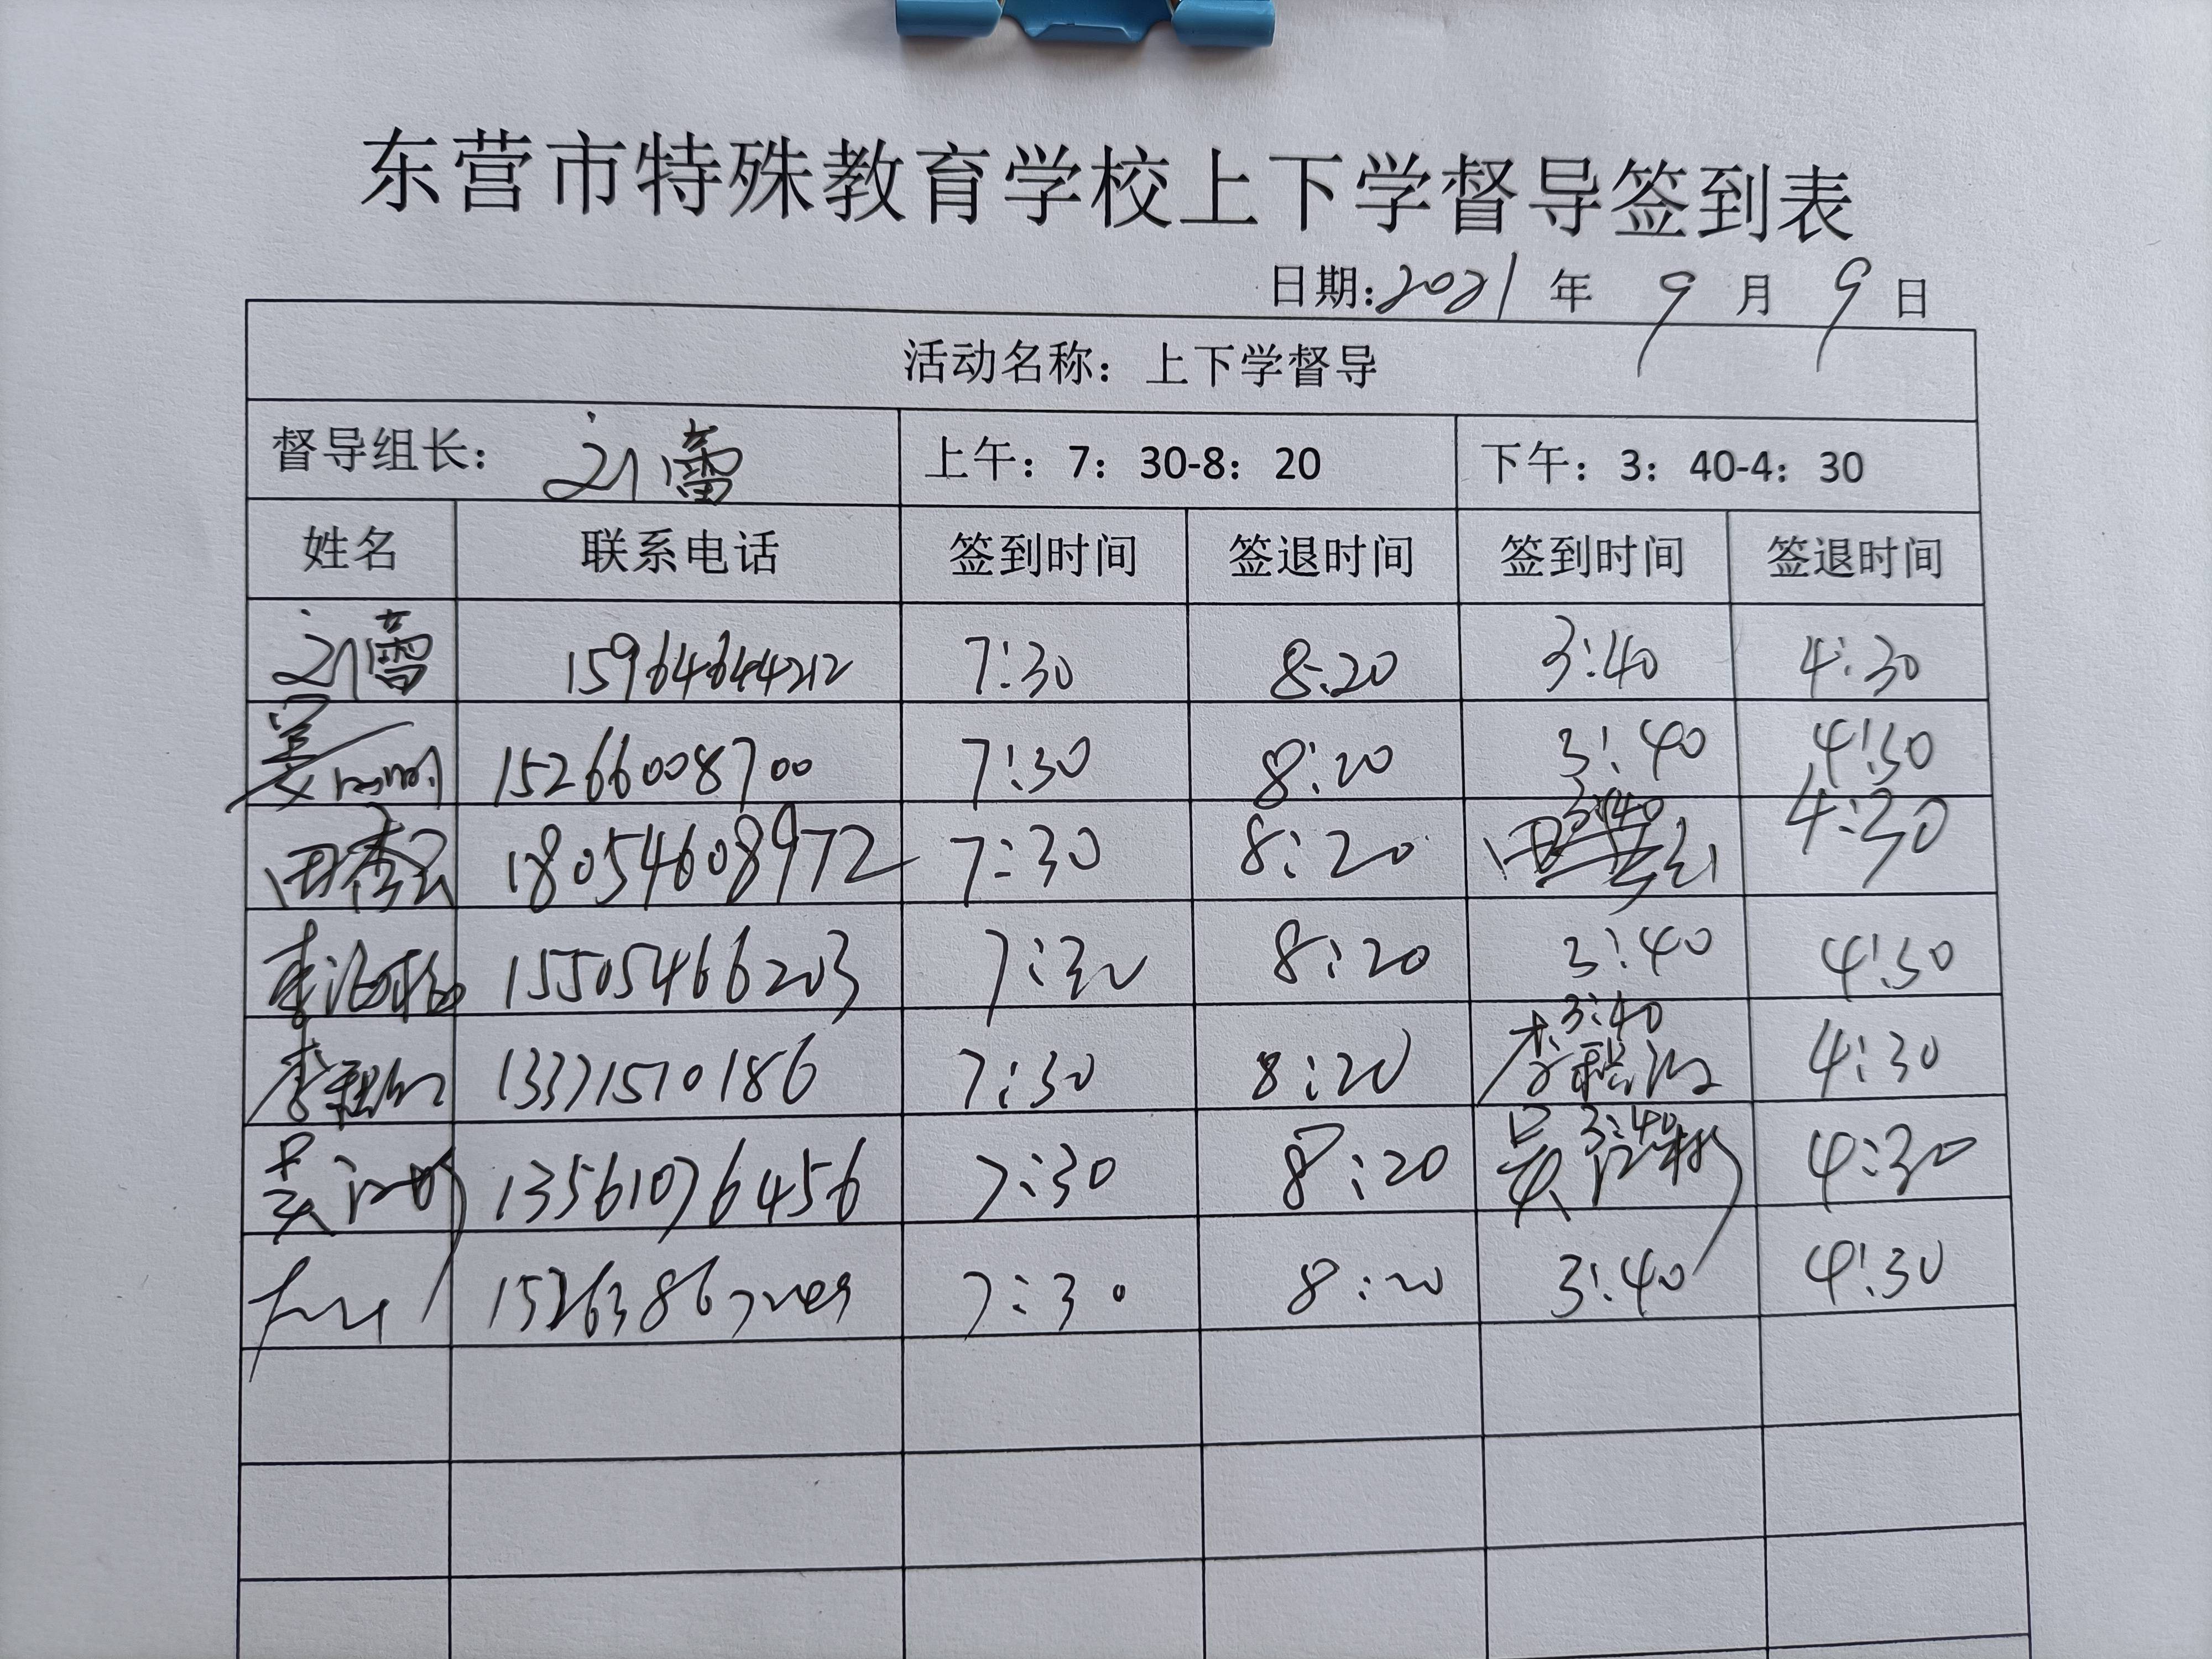 东营市特殊教育学校上下学督导签到表
日期:2021 年 9 月 9 日
活动名称：上下学督导
督导组长： 刘蕾 上午：7：30-8：20 下午：3：40-4：30
姓名 联系电话 签到时间 签退时间 签到时间 签退时间
刘蕾 15964644212 7:30 8:20 3:40 4:30
15266008700 7:30 8:20 3:40 4:30
田秀云 18054608972 7:30 8:20 3:40 4:30
李 15505466203 7:30 8:20 3:40 4:30
李 13371510186 7:30 8:20 3:40 4:30
吴 13561076456 7:30 8:20 3:40 4:30
7:30 8:20 3:40 4:30